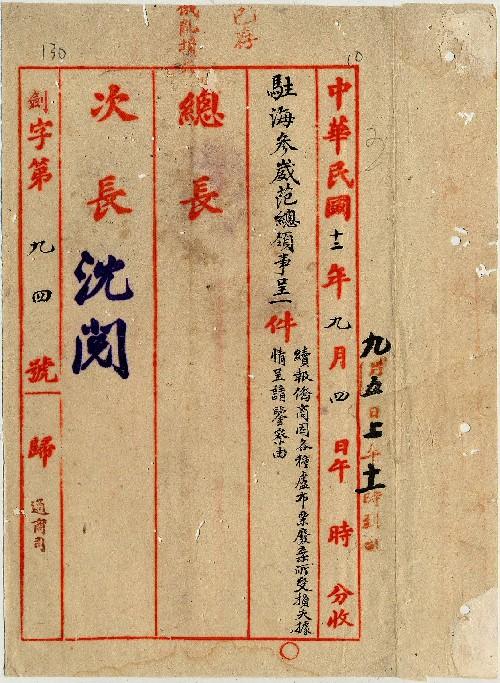 已存
130
10
中華民國十二年九月四日午時分收
九月五日上午十一時到司
駐海參崴范總領事呈一件
續報僑商因各種盧布票廢棄所受損失據
情呈請鑒察由
總長
次長
沈閱
劍字第九四號歸
通商司